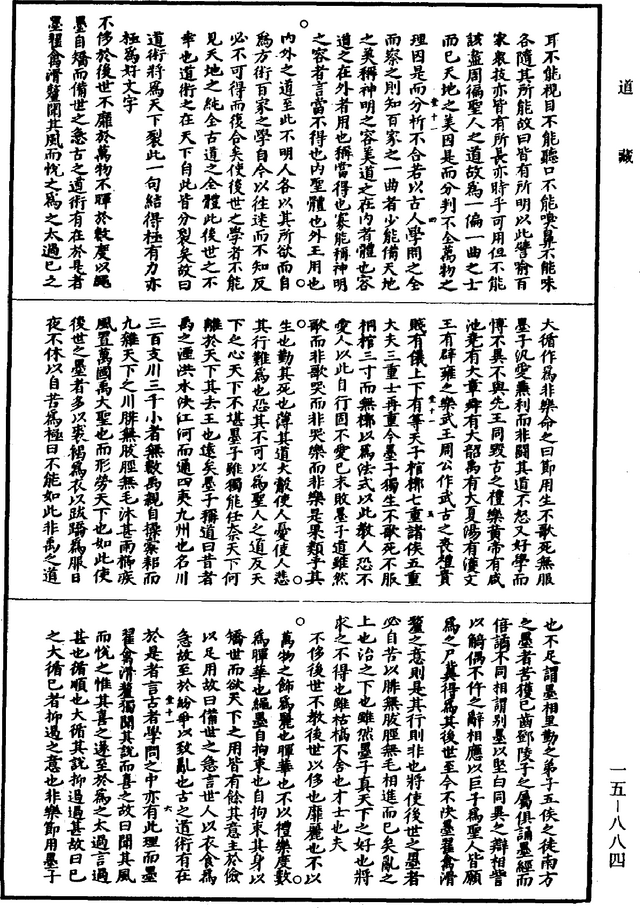 道藏
耳不能視目不能聽口不能嗅鼻不能味
各隨其所能故曰皆有所明以此譬喻百
家衆技亦皆有所長亦時乎可用但不能
該盡周徧聖人之道故為一偏一曲之士
而已天地之美因是而分判不全萬物之
理因是而分析不合若以古人學問之全
而察之則知百家之一曲者少能備天地
之美稱神明之容美道之在內者體也容
道之在外者用也稱當得也寡能稱神明
之容者言當不得也內聖體也外王用也
內外之道至此不明人各以其所欲而自
為方術百家之學自今以往迷而不知反
必不可得而復合矣使後世之學者不能
見天地之純全古道之全體此後世之不
幸也道術之在天下自此皆分裂矣故曰
道術將為天下裂此一句結得極有力亦
極為好文字
不侈於後世不靡於萬物不暉於數度以繩
墨自矯而備世之急古之道術有在於是者
墨翟禽滑釐聞其風而悅之為之太過已之
大循作為非樂命之曰節用生不歌死無服
墨子汎愛兼利而非鬭其道不怒又好學而
博不異不與先王同毀古之禮樂黃帝有咸
池堯有大章舜有大韶禹有大夏湯有濩文
王有辟雍之樂武王周公作武古之喪禮貴
賤有儀上下有等天子棺槨七重諸侯五重
大夫三重士再重今墨子獨生不歌死不服
桐棺三寸而無槨以為法式以此教人恐不
愛人以此自行固不愛己未敗墨子道雖然
歌而非歌哭而非哭樂而非樂是果類乎其
生也勤其死也薄其道大觳使人憂使人悲
其行難為也恐其不可以為聖人之道反天
下之心天下不堪墨子雖獨能任奈天下何
離於天下其去王也遠矣墨子稱道曰昔者
禹之湮洪水決江河而通四夷九州也名川
三百支川三千小者無數禹親自操橐耜而
九雜天下之川腓無胈脛無毛沐甚雨櫛疾
風置萬國禹大聖也而形勞天下也如此使
後世之墨者多以裘褐為衣以跂蹻為服日
夜不休以自苦為極曰不能如此非禹之道
也不足謂墨相里勤之弟子五侯之徒南方
之墨者苦獲已齒鄧陵子之屬俱誦墨經而
倍譎不同相謂別墨以堅白同異之辯相訾
以觭偶不仵之辭相應以巨子為聖人皆願
為之尸冀得為其後世至今不決墨翟禽滑
釐之意則是其行則非也將使後世之墨者
必自苦以腓無胈脛無毛相進而已矣亂之
上也治之下也雖然墨子真天下之好也將
求之不得也雖枯槁不舍也才士也夫
不侈後世不教後世以侈也靡麗也不以
萬物之飾為麗也暉華也不以禮樂度數
為暉華也繩墨自拘束也自拘束其身以
矯世而欲天下之用皆有餘其意主於儉
以足用故曰備世之急言世人以衣食為
急故至於紛爭以致亂也古之道術有在
於是者言古者學問之中亦有此理而墨
翟禽滑釐獨聞其說而喜之故曰聞其風
而悅之惟其喜之遂至於為之太過言過
甚也循順也大循其說抑遏過甚故曰已
之大循已者抑遏之意也非樂節用墨子
一五—八八四